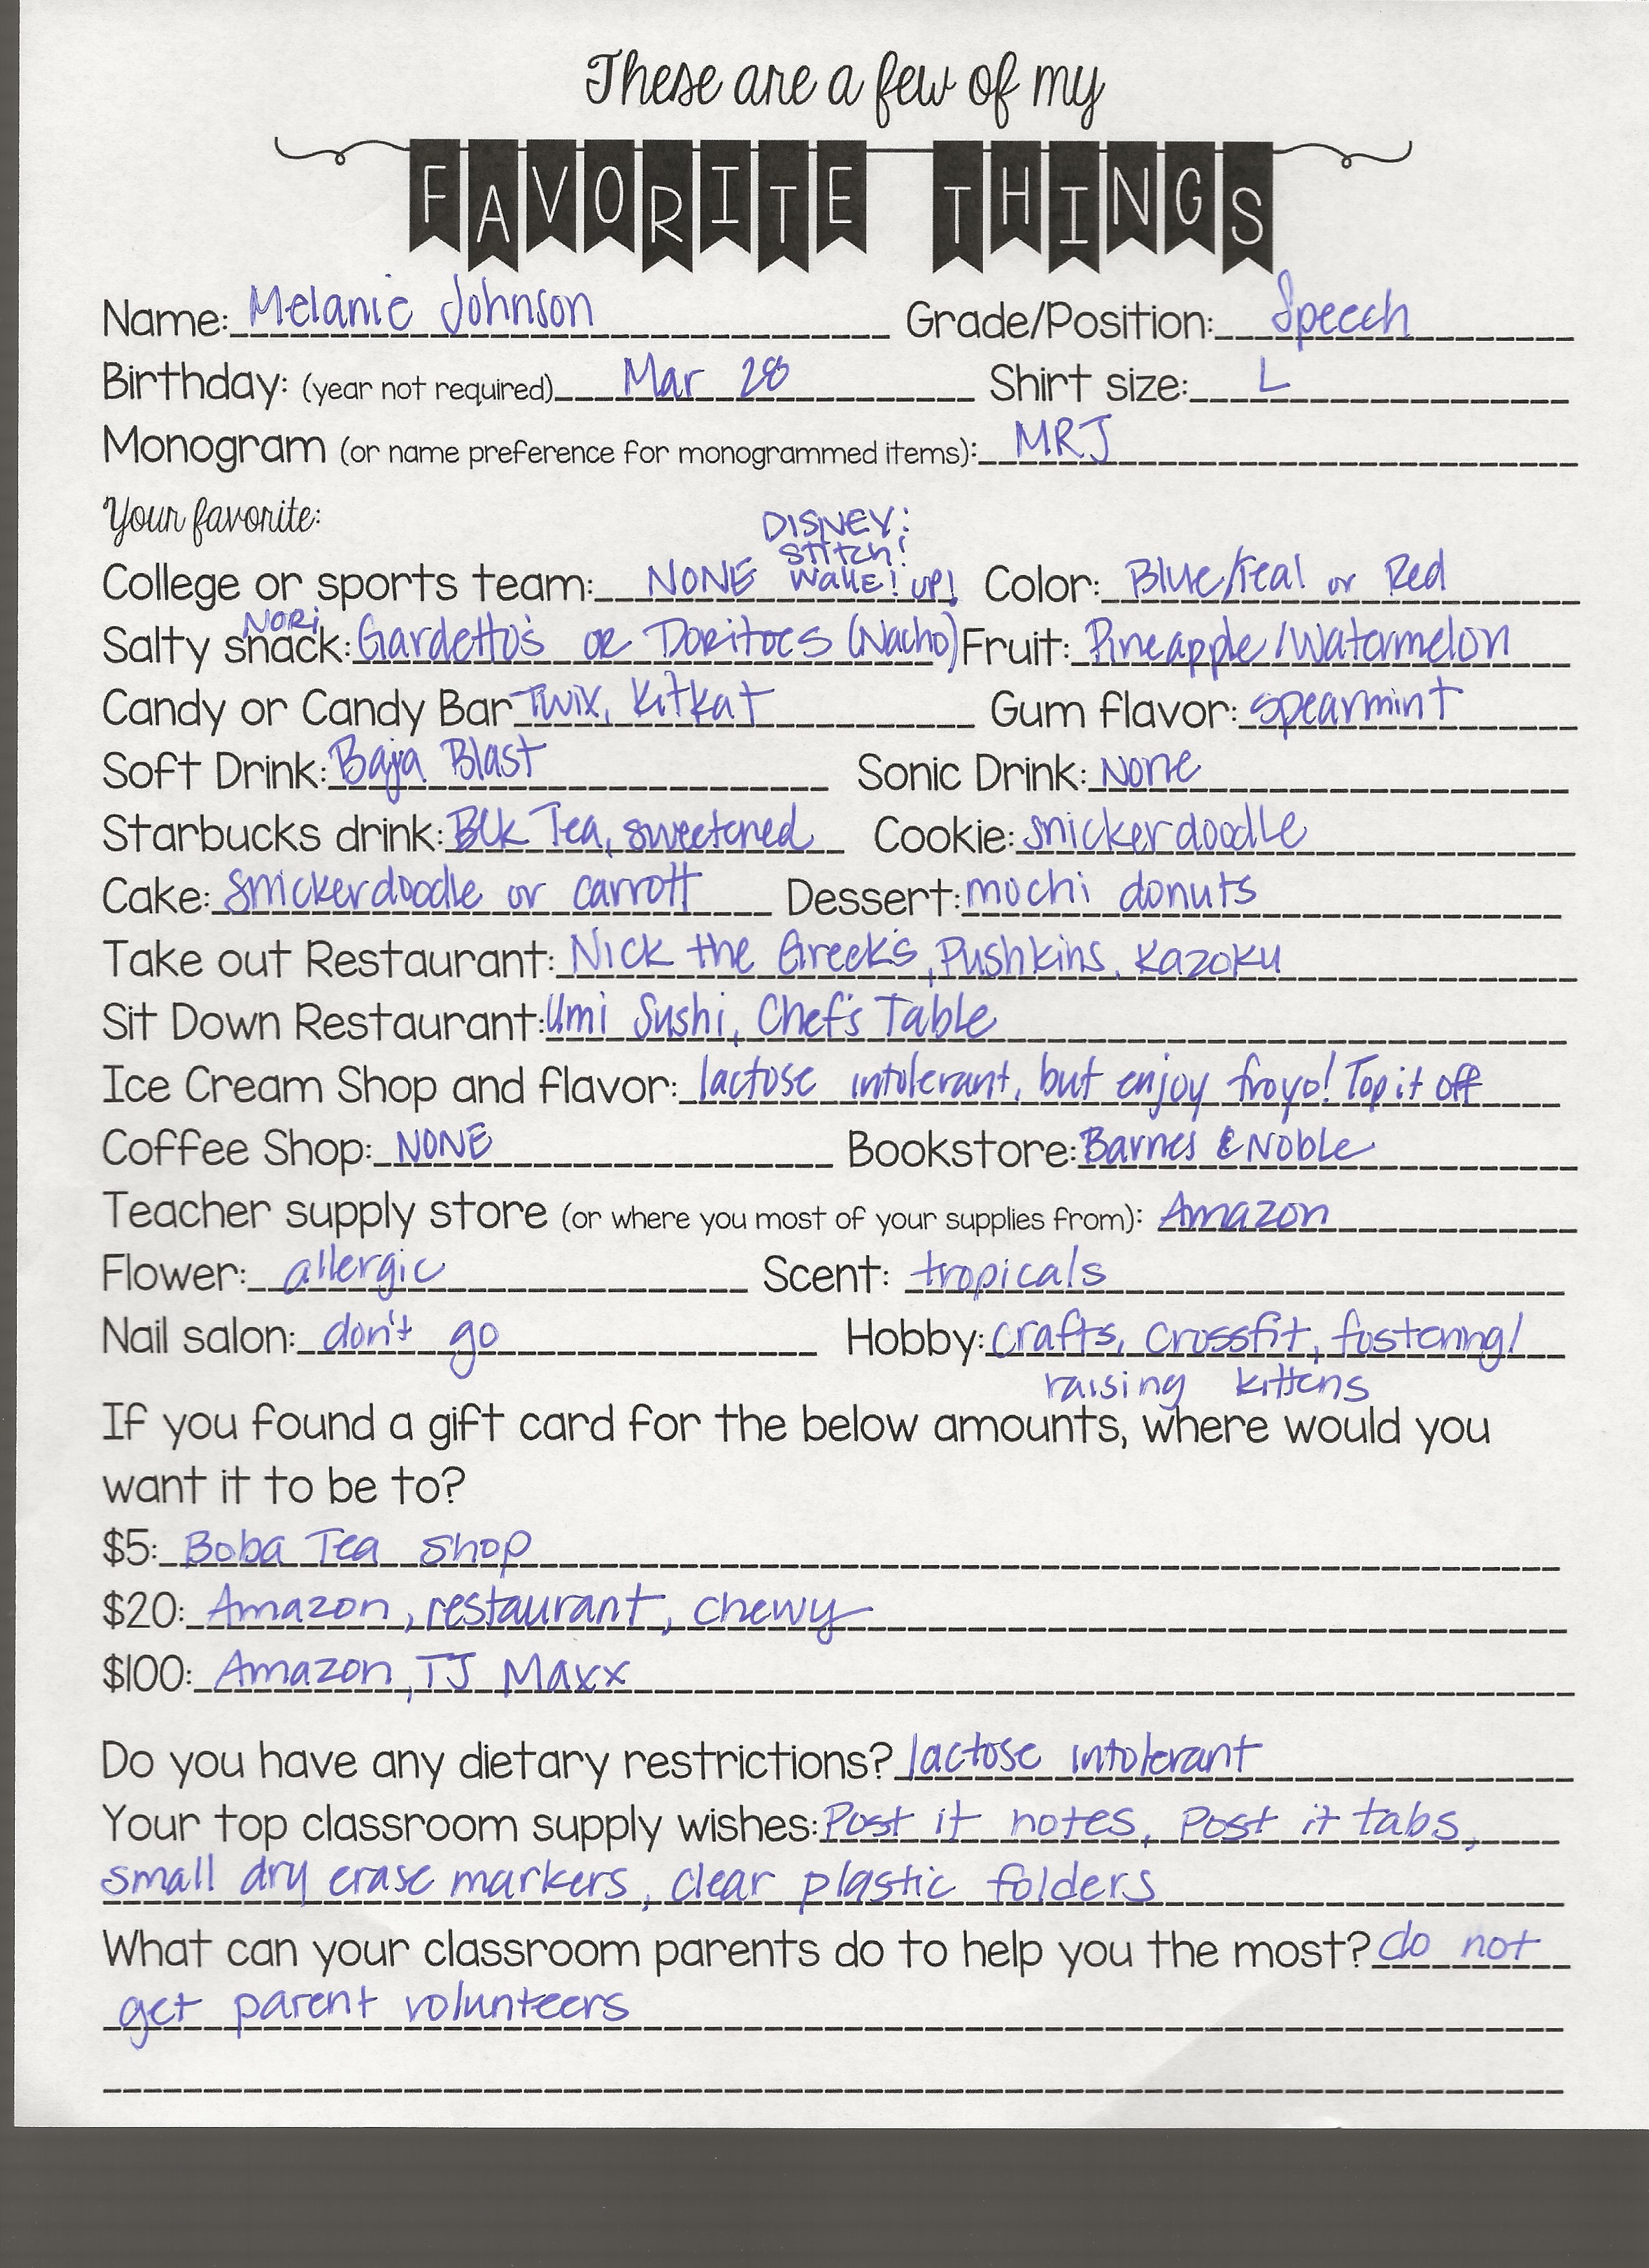 These are a few of my
FAVORITE THINGS
Name: Melanie Johnson Grade/Position: Speech
Birthday: (year not required) Mar 28 Shirt size: L
Monogram (or name preference for monogrammed items): MRJ
Your favorite:
DISNEY:
Stitch!
College or sports team: NONE WALLE! UP! Color: Blue/Teal or Red
NORI
Salty snack: Gardetto's or Doritoes (Nacho) Fruit: Pineapple/Watermelon
Candy or Candy Bar Twix, Kitkat Gum flavor: spearmint
Soft Drink: Baja Blast Sonic Drink: None
Starbucks drink: Blk Tea, sweetened Cookie: snickerdoodle
Cake: snickerdoodle or carrott Dessert: mochi donuts
Take out Restaurant: Nick the Greek's, Pushkins, Kazoku
Sit Down Restaurant: Umi Sushi, Chef's Table
Ice Cream Shop and flavor: lactose intolerant, but enjoy froyo! Top it off
Coffee Shop: NONE Bookstore: Barnes & Noble
Teacher supply store (or where you most of your supplies from): Amazon
Flower: allergic Scent: tropicals
Nail salon: don't go Hobby: crafts, crossfit, fostering/
raising kittens
If you found a gift card for the below amounts, where would you
want it to be to?
$5: Boba Tea shop
$20: Amazon, restaurant, chewy
$100: Amazon, TJ Maxx
Do you have any dietary restrictions? lactose intolerant
Your top classroom supply wishes: Post it notes, Post it tabs,
small dry erase markers, clear plastic folders
What can your classroom parents do to help you the most? do not
get parent volunteers